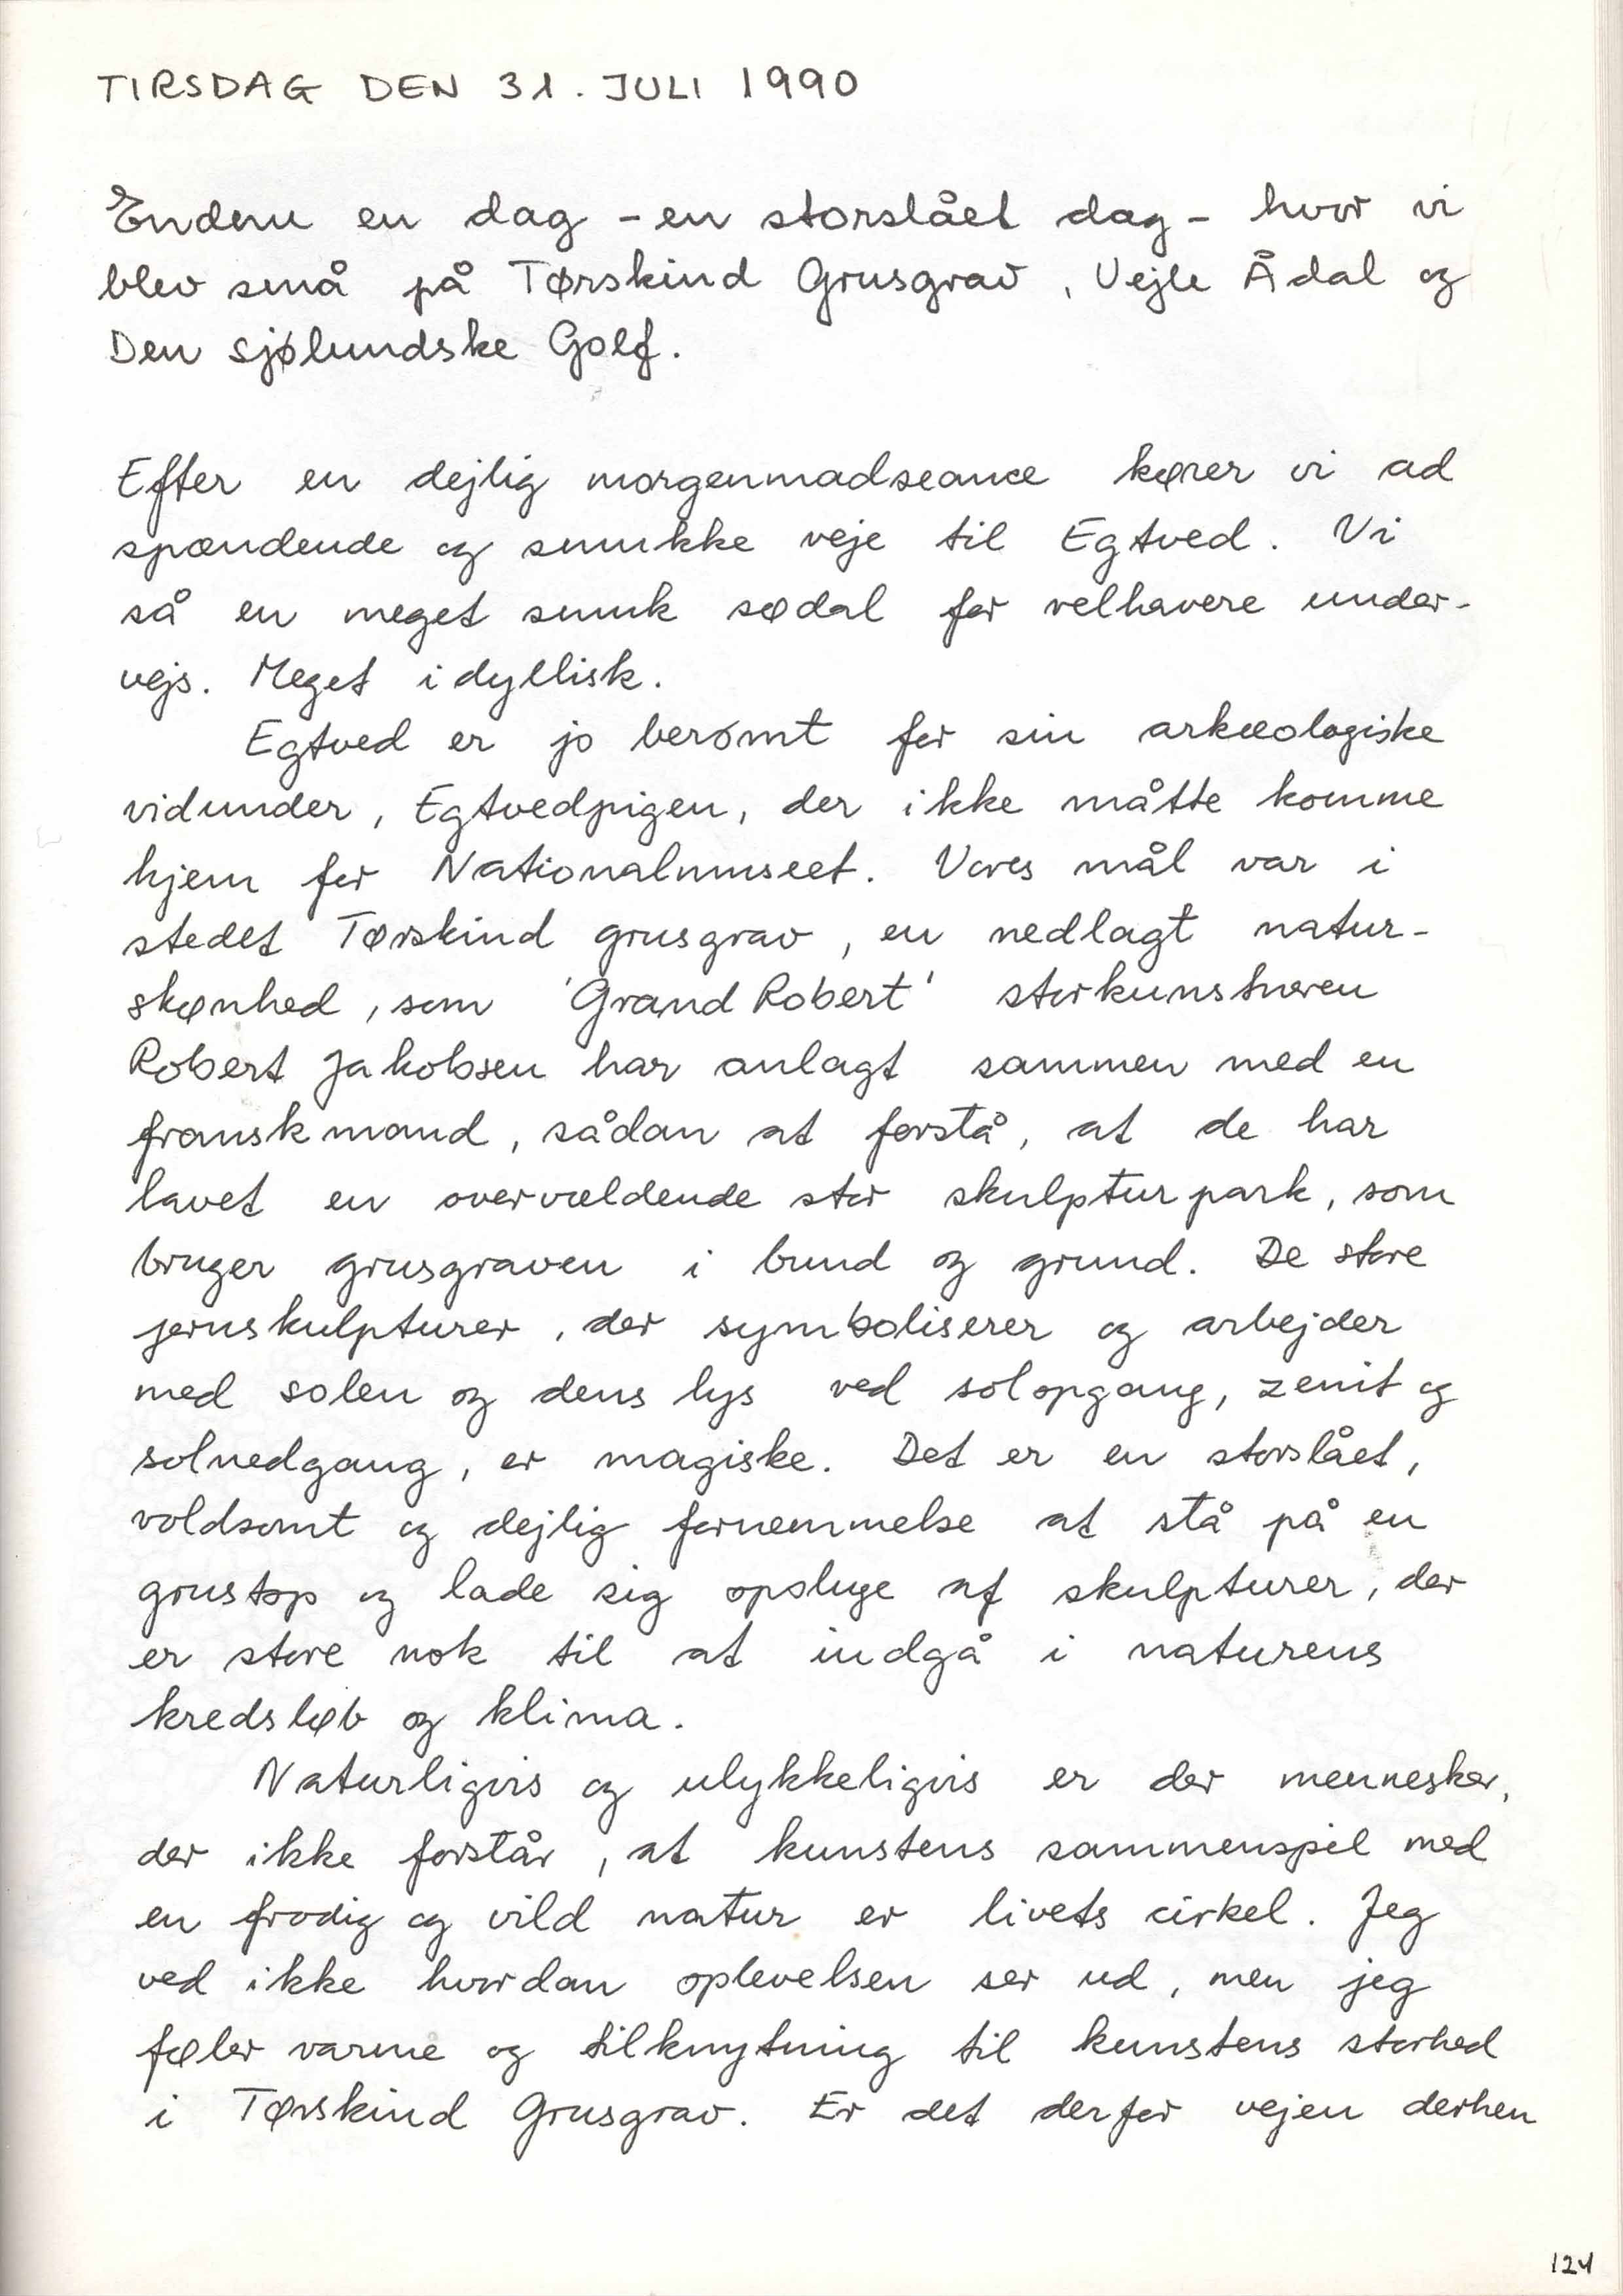 TIRSDAG DEN 31. JULI 1990
Endnu en dag - en storslået dag - hvor vi
blev små på Tørskind Grusgrav, Vejle Ådal og
Den sjølundske Golf.
Efter en dejlig morgenmadseance kører vi ad
spændende og smukke veje til Egtved. Vi
så en meget smuk sødal for velhavere under-
vejs. Meget idyllisk.
Egtved er jo berømt for sin arkæologiske
vidunder, Egtvedpigen, der ikke måtte komme
hjem for Nationalmuseet. Vores mål var i
stedet Tørskind grusgrav, en nedlagt natur-
skønhed, som 'Grand Robert' storkunstneren
Robert Jakobsen har anlagt sammen med en
franskmand, sådan at forstå, at de har
lavet en overvældende stor skulpturpark, som
bruger grusgraven i bund og grund. De store
jernskulpturer, der symboliserer og arbejder
med solen og dens lys ved solopgang, zenit og
solnedgang, er magiske. Det er en storslået,
voldsomt og dejlig fornemmelse at stå på en
grustop og lade sig opsluge af skulpturer, der
er store nok til at indgå i naturens
kredsløb og klima.
Naturligvis og ulykkeligvis er der mennesker,
der ikke forstår, at kunstens sammenspil med
en frodig og vild natur er livets cirkel. Jeg
ved ikke hvordan oplevelsen ser ud, men jeg
føler varme og tilknytning til kunstens storhed
i Tørskind Grusgrav. Er det derfor vejen derhen
124